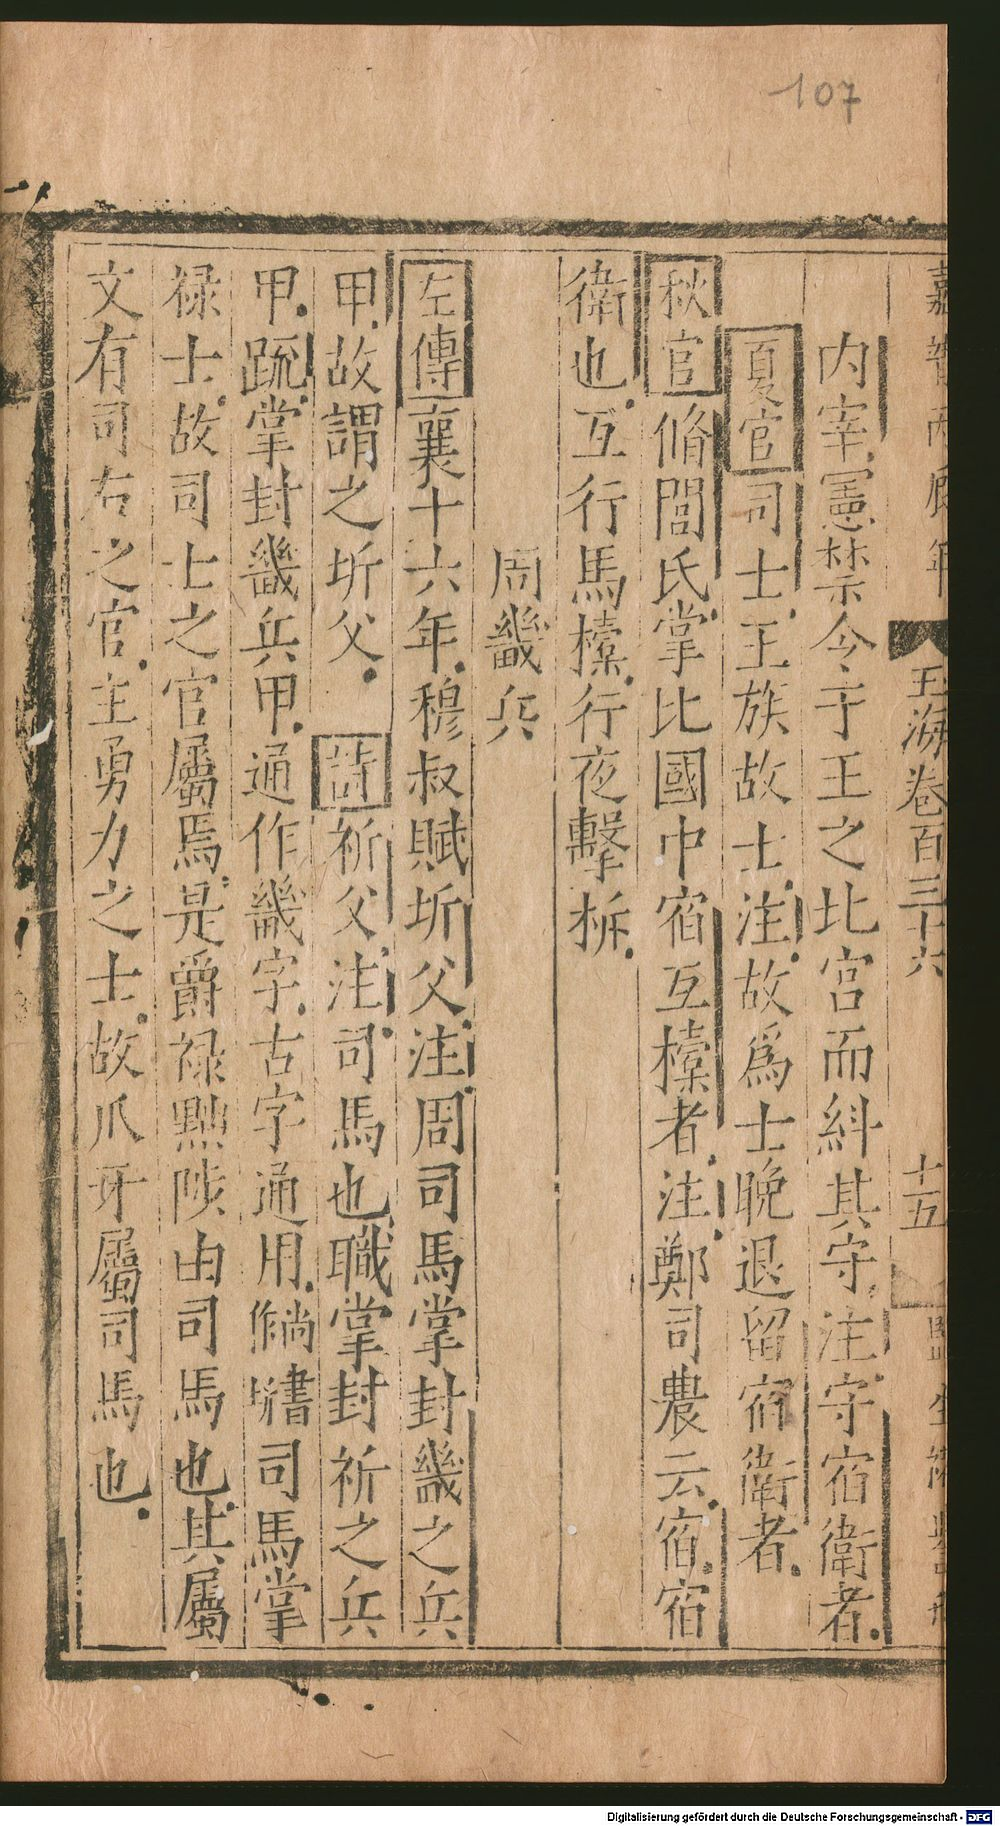 107
玉海卷百三十六
十五
内宰憲禁令于王之北宮而糾其守注守宿衛者
夏官司士王族故士注故爲士晚退留宿衛者
秋官脩閭氏掌比國中宿互㯓者注鄭司農云宿宿
衛也互行馬㯓行夜擊柝
周畿兵
左傳襄十六年穆叔賦圻父注周司馬掌封畿之兵
甲故謂之圻父 詩祈父注司馬也職掌封祈之兵
甲疏掌封畿兵甲通作畿字古字通用尚書作圻司馬掌
禄士故司士之官屬焉是爵禄黜陟由司馬也其屬
文有司右之官主勇力之士故爪牙屬司馬也
Digitalisierung gefördert durch die Deutsche Forschungsgemeinschaft - DFG